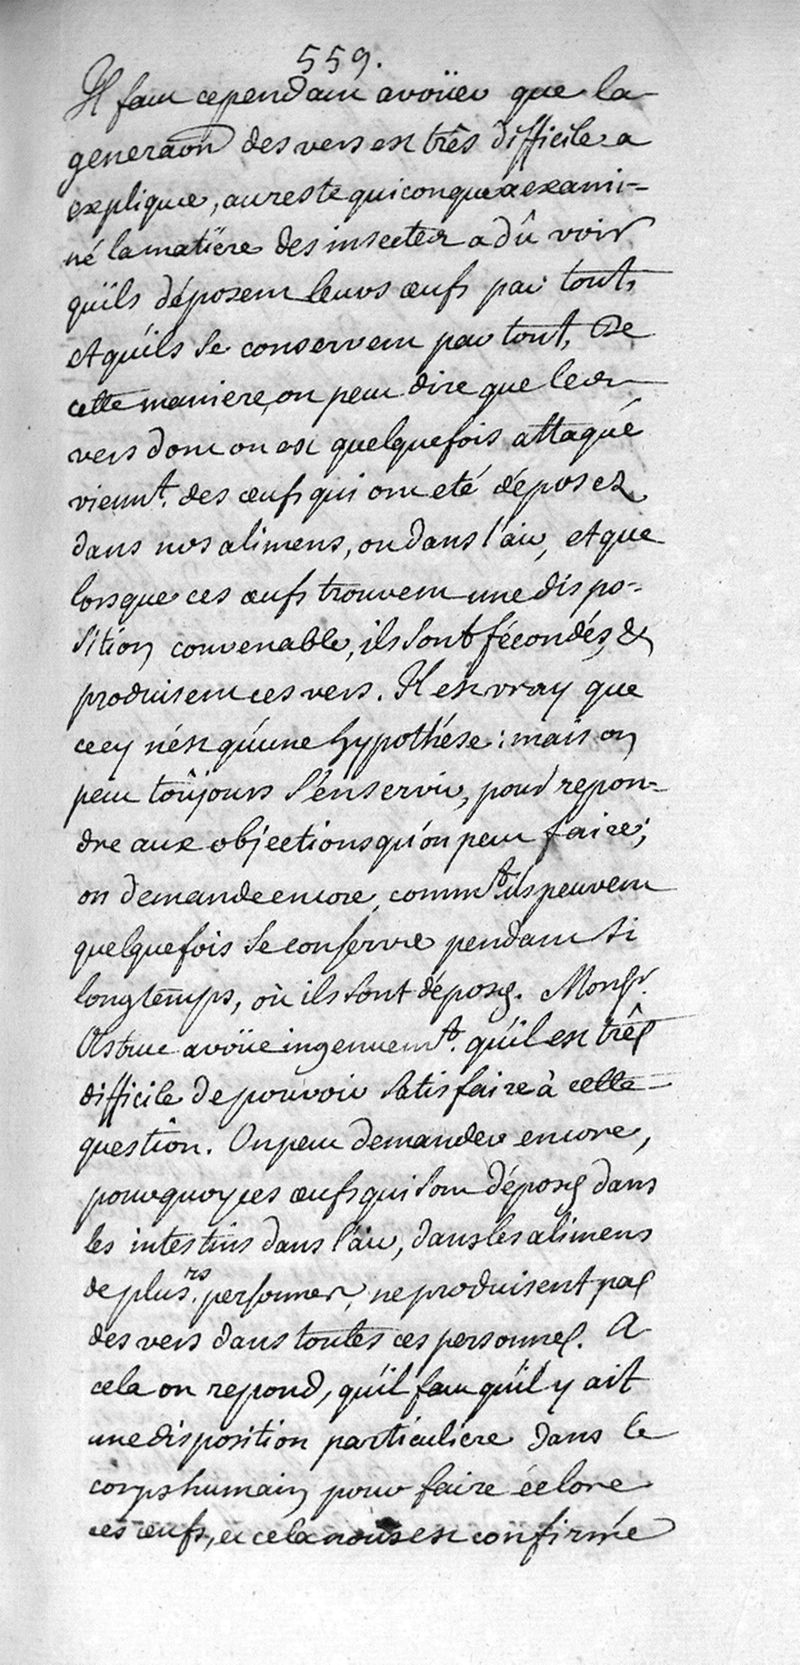 559.
Il faut cependant avoüer que la
generaõn des vers est três difficile a
expliquer, au reste quiconque a exami-
né la matiére des insectes a dû voir
qu'ils déposent leurs œufs par tout,
et qu'ils se conservent par tout. De
cette maniere, on peut dire que les
vers dont on est quelquefois attaqué
vienn.t des œufs qui ont eté déposez
dans nos alimens, ou dans l'air, et que
lorsque ces œufs trouvent une dispo-
sition convenable, ils sont fécondés, &
produisent ces vers. Il est vray que
cecy n'ést qu'une hypothése: mais on
peut toûjours s'en servir, pour repon-
dre aux objections qu'on peut faire;
on demande encore, comm.t ils peuvent
quelquefois se conserver pendant si
longtemps, où ils sont déposés. Mons.r
Astruc avoüe ingenuem.t qu'il est três
difficile de pouvoir satisfaire à cette
question. On peut demander encore,
pourquoy ces œufs qui sont déposés dans
les intestins dans l'air, dans les alimens
de plus.rs personnes, ne produisent pas
des vers dans toutes ces personnes. A
cela on repond, qu'il faut qu'il y ait
une disposition particuliere dans le
corps humain pour faire éclore
ces œufs, et cela nous est confirmé